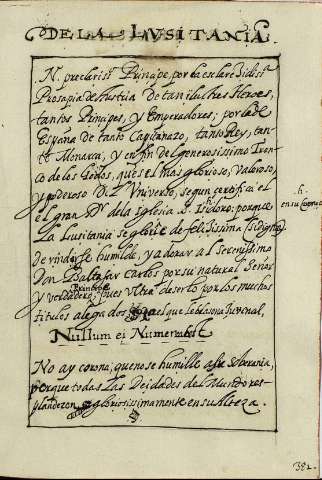 DE LA LVSITANIA.
N. preclarisº Principe por la esclareçidisª
Prosapia de Austria de tan ilustres Heroes,
tantos Principes, y Emperadores; por la de
España de tanto Capitanazo, tanto Rey, tan-
to Monarca, y en fin del generosissimo Tron-
co de los Godos, que es el mas glorioso, valeroso,
y poderoso D. Vniverso, segun certifica el
el gran Dr. de la Iglesia S. Isidoro: porque
h.
en su Coronica
La Lusitania se glorie de felisissima
de rindirse humilde, y adorar al Serenissimo
Don Baltasar Carlos por su natural Señor
Principe
y verdadero, pues vltra de serlo por los muchos
titulos alegados, es aquel que le blasona Juvenal,
Nullum ei Numerabit
No ay corona, que no se humille a su soberania,
porque todas las Deidades del Mundo res-
plandezen gloriosissimamente en su Alteza.
382.